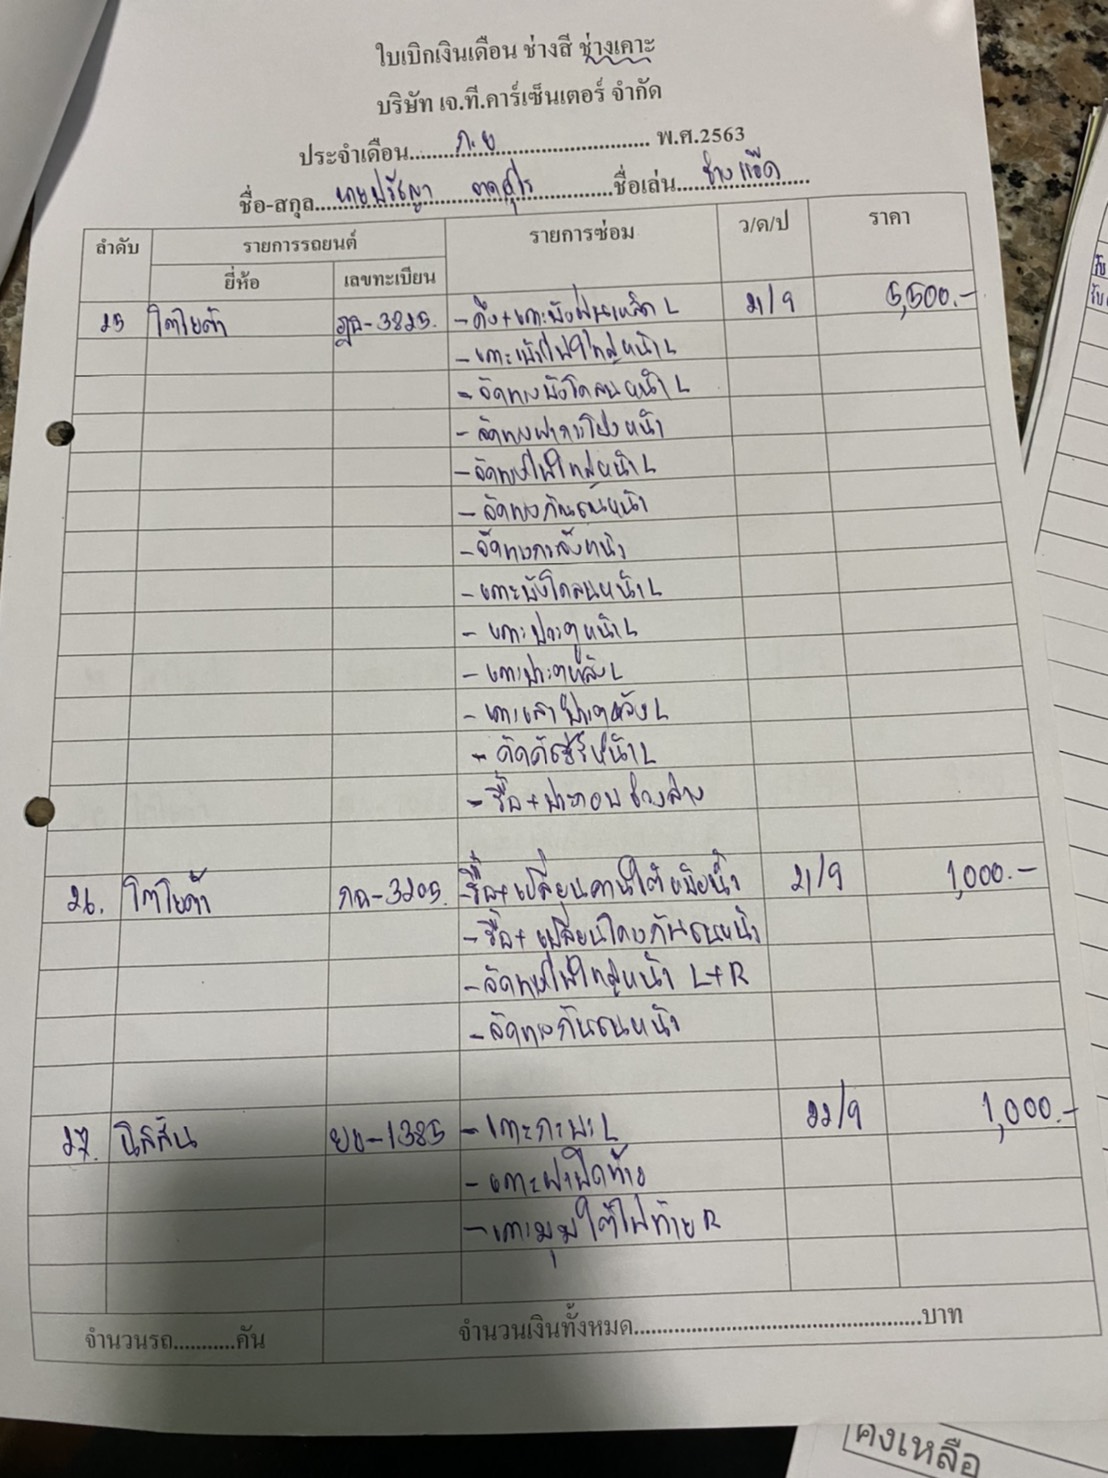 ใบเบิกเงินเดือน ช่างสี ช่างเคาะ
บริษัท เจ.ที.คาร์เซ็นเตอร์ จำกัด
ประจำเดือน.....ก.ย.....พ.ศ.2563
ชื่อ-สกุล.....นายปรัชญา.....ชื่อเล่น.....ช่างแอ๊ด.....
ลำดับ รายการรถยนต์ รายการซ่อม ว/ด/ป ราคา
ยี่ห้อ เลขทะเบียน
25 โตโยต้า ฎฉ-3825. -ดึง+เคาะบังฝุ่นเหล็ก L 21/9 5,500.-
-เคาะเบ้าไฟใหญ่หน้า L
-จัดทรงบังโคลนหน้า L
-จัดทรงฝากระโปรงหน้า
-จัดทรงไฟใหญ่หน้า L
-จัดทรงกันชนหน้า
-จัดทรงกระจังหน้า
-เคาะบังโคลนหน้า L
-เคาะประตูหน้า L
-เคาะประตูหลัง L
-เคาะเสาประตูหลัง L
-ดัดคัชชีหน้า L
-รื้อ+ประกอบช่วงล่าง
26. โตโยต้า กฉ-3205. -รื้อ+เปลี่ยนคานใต้หม้อน้ำ 21/9 1,000.-
-รื้อ+เปลี่ยนโครงกันชนหน้า
-จัดทรงไฟใหญ่หน้า L+R
-จัดทรงกันชนหน้า
27. นิสสัน ยข-1385 -เคาะกระบะ L 22/9 1,000.-
-เคาะฝาปิดท้าย
-เคาะมุมใต้ไฟท้าย R
จำนวนรถ...........คัน จำนวนเงินทั้งหมด..................................................บาท
คงเหลือ